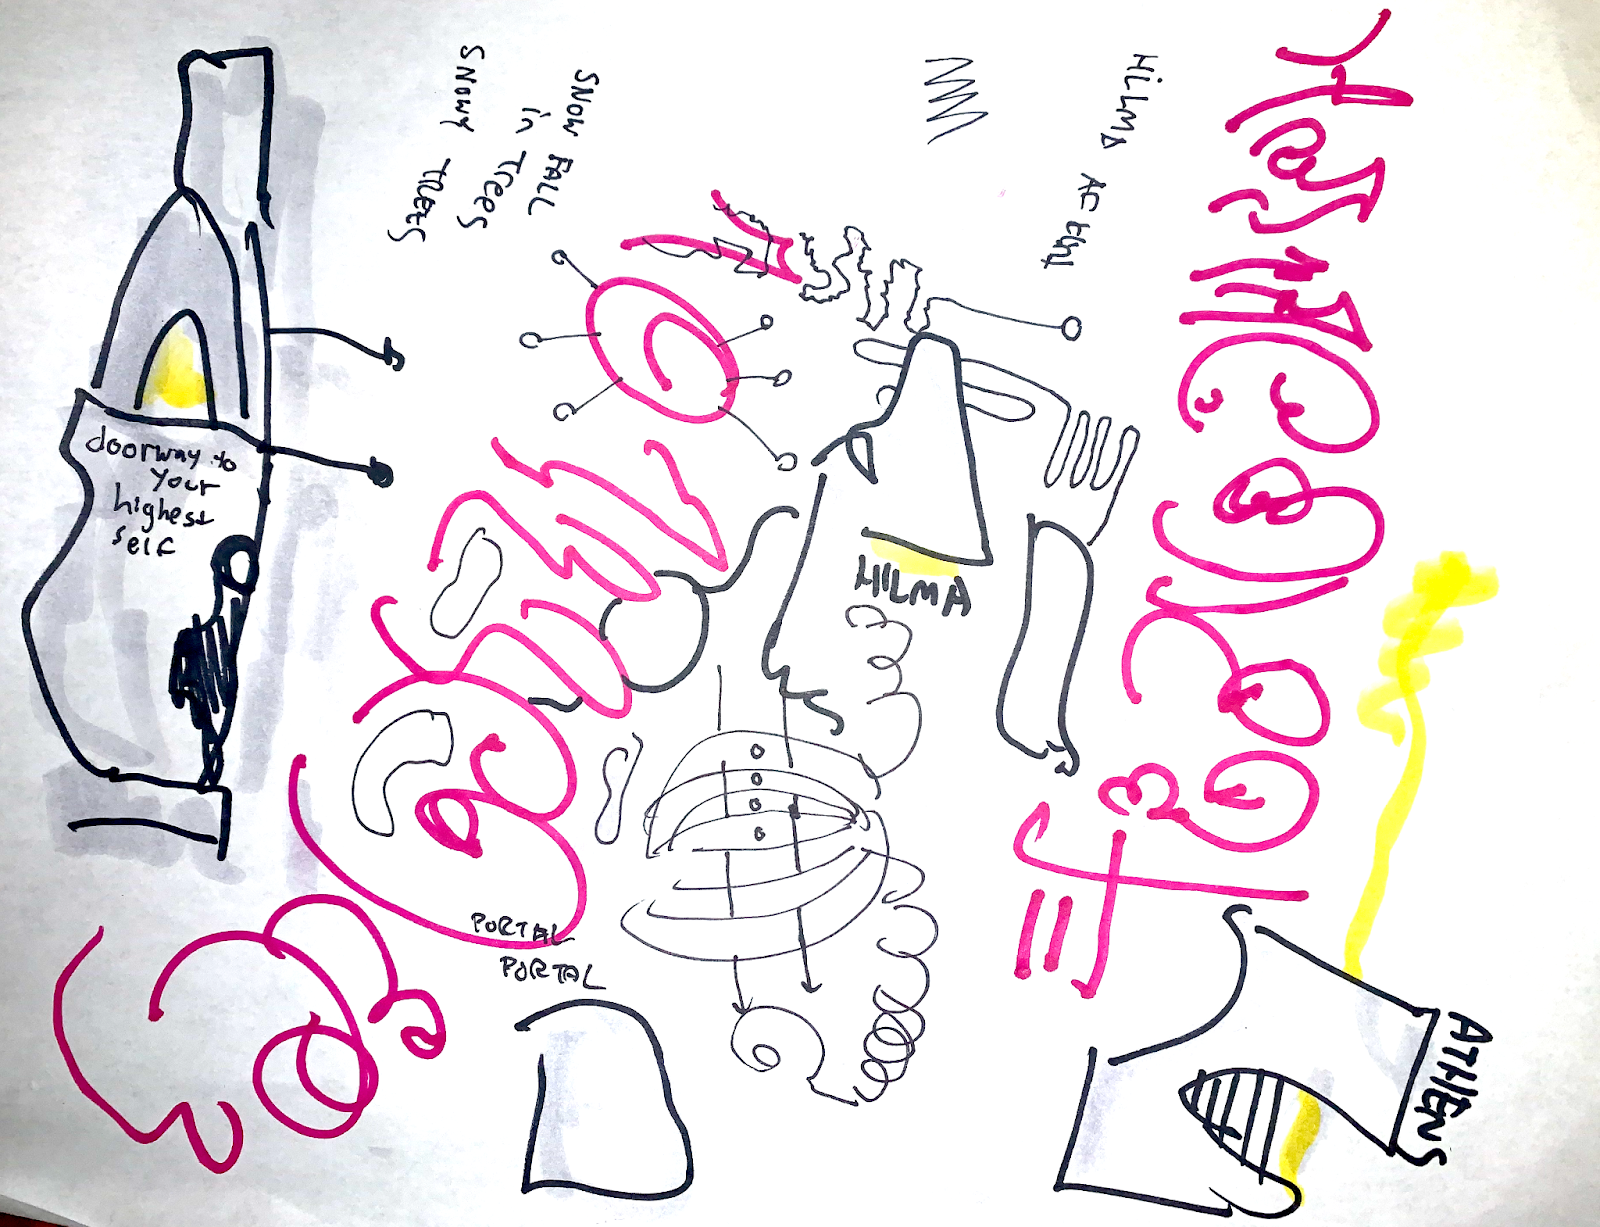 SNOW FALL
in TREES
SNOWY TREES
HiLMA AF
doorway to
your
highest
self
HILMA
PORTAL
PORTAL
ATHENS